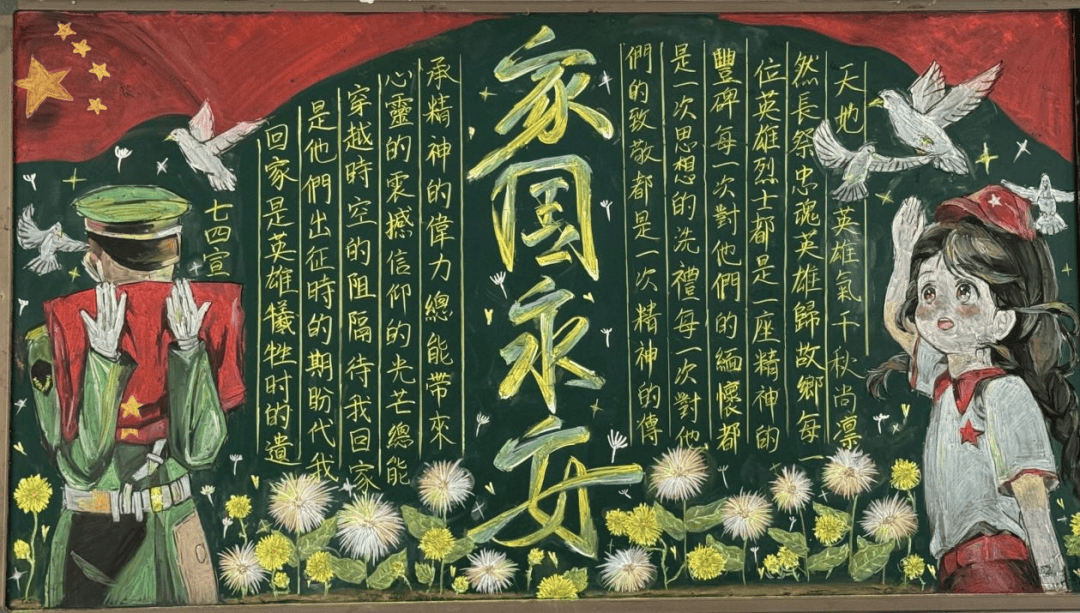 家国永安
天地 英雄氣千秋尚凛
然長祭忠魂英雄歸故鄉每一
位英雄烈士都是一座精神的
豐碑每一次對他們的緬懷都
是一次思想的洗禮每一次對他
們的致敬都是一次精神的傳
承精神的偉力總能帶來
心靈的震撼信仰的光芒總能
穿越時空的阻隔待我回家
是他們出征時的期盼代我
回家是英雄犧牲时的遺
七四宣